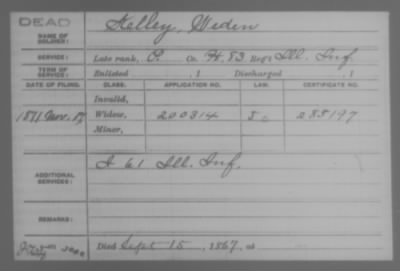 DEAD
NAME OF SOLDIER: Kelley, Weden
SERVICE: Late rank, P. Co. H. 83 Reg't Ill. Inf.
TERM OF SERVICE: Enlisted , 1 Discharged , 1
DATE OF FILING. CLASS. APPLICATION NO. LAW. CERTIFICATE NO.
Invalid,
Widow, 200314 288197
Minor,
ADDITIONAL SERVICES: I 61 Ill. Inf.
REMARKS:
Died Sept 15, 1867, at